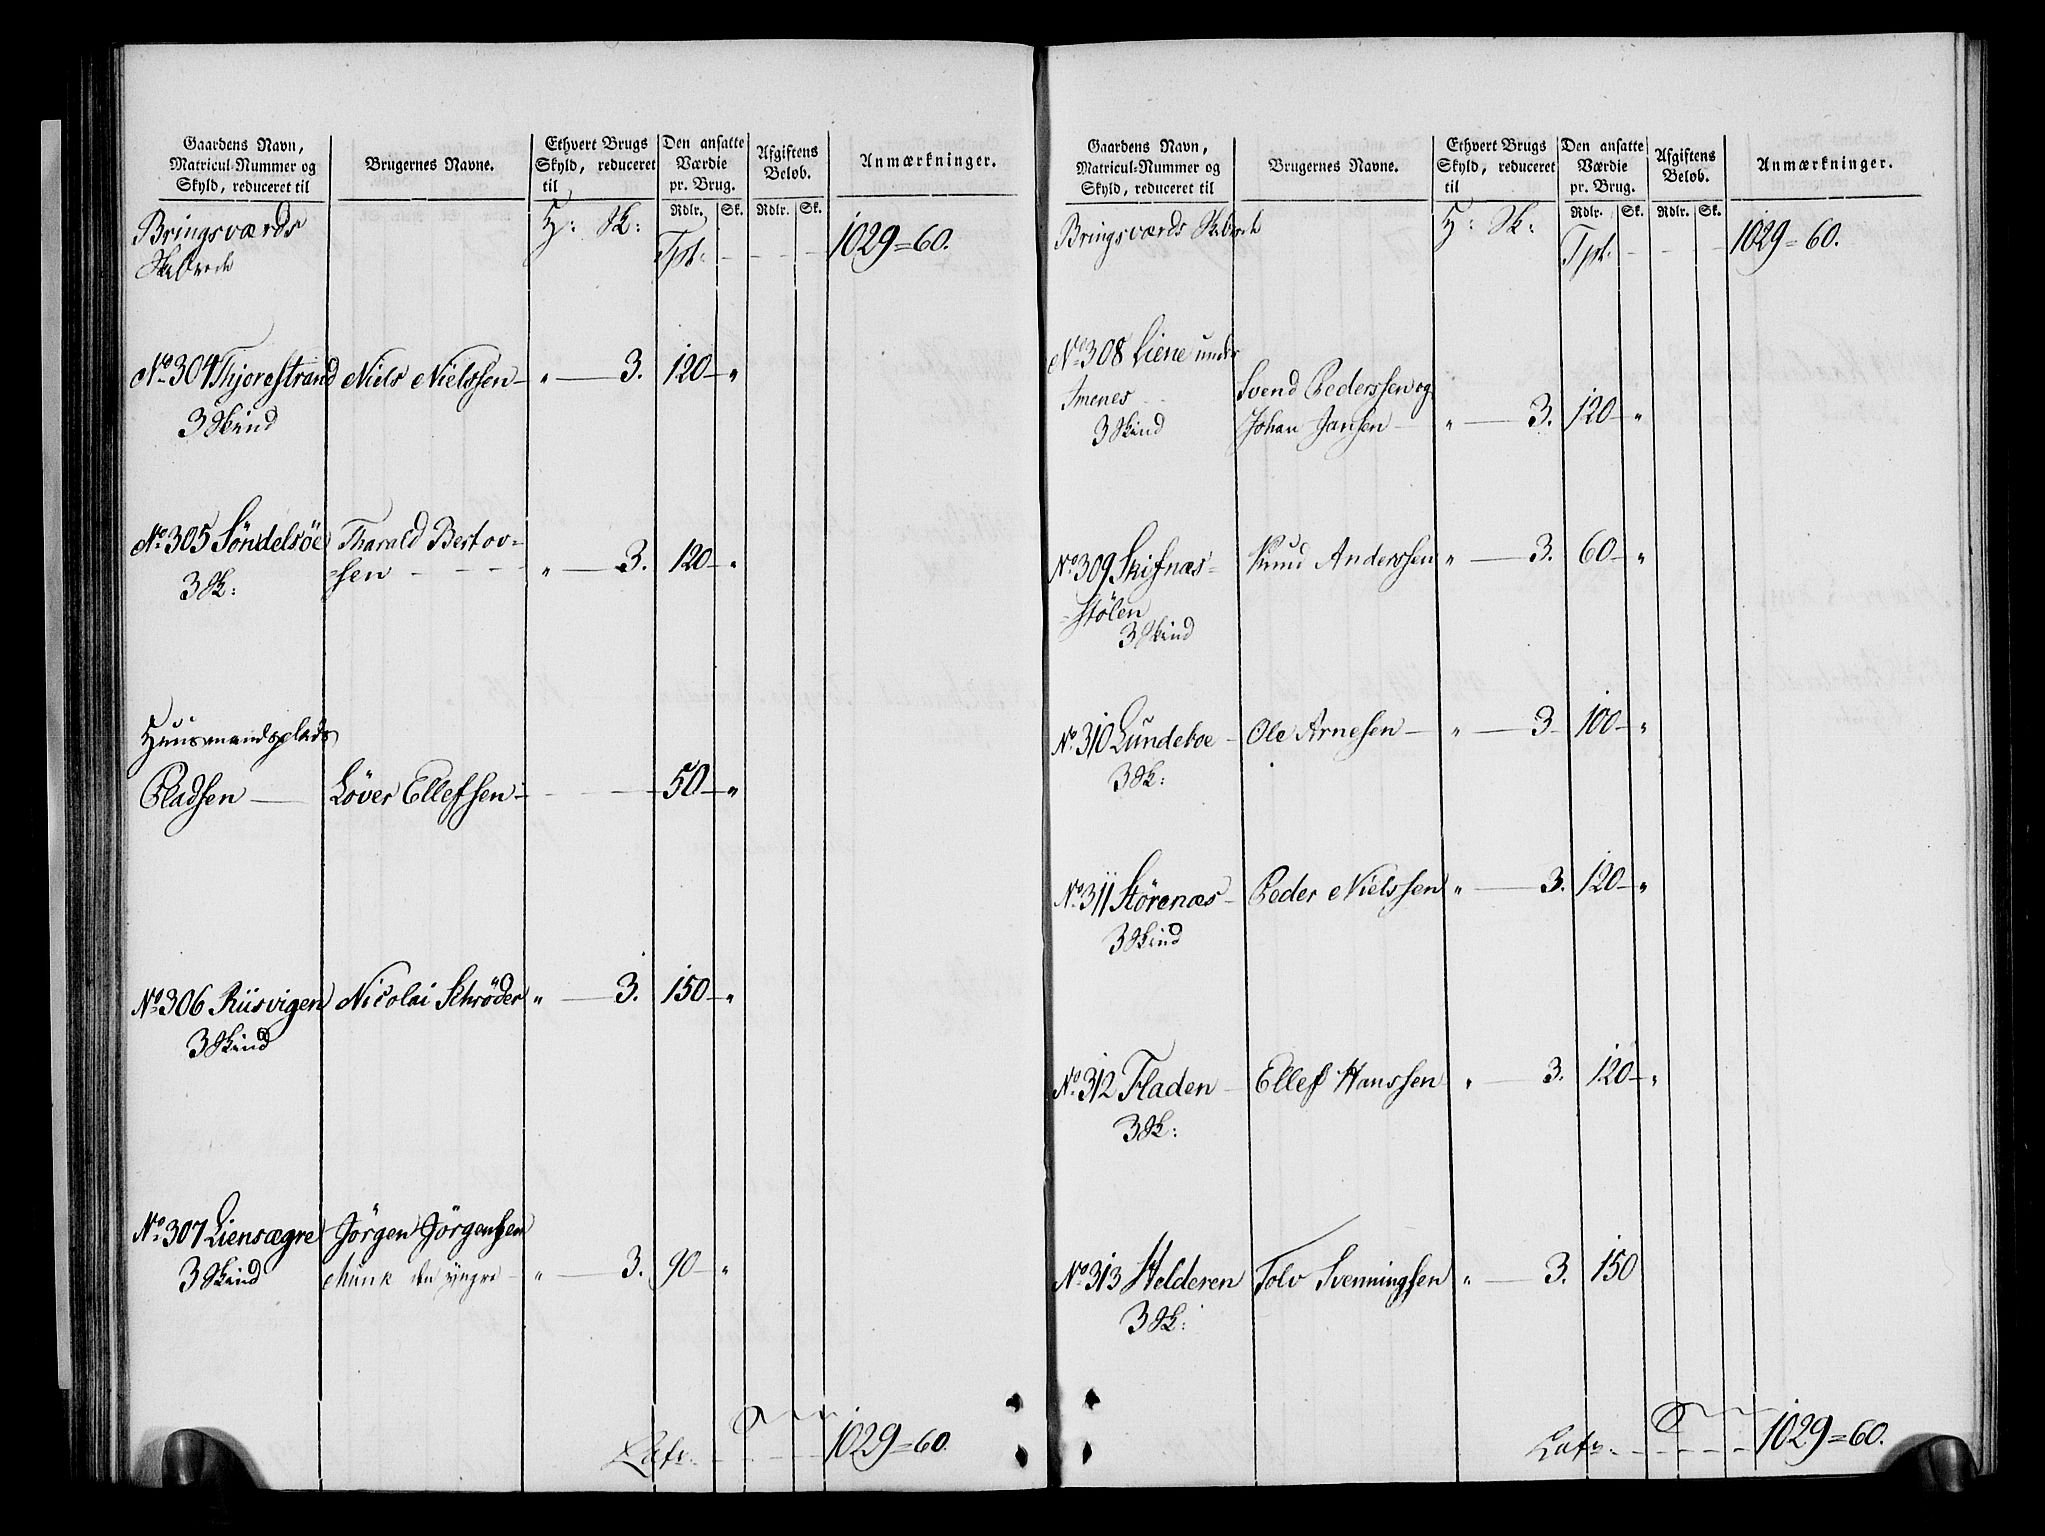 Gaardens Navn,
Matricul-Nummer og
Skyld, reduceret til
Brugernes Navne.
Ethvert Brugs
Skyld, reduceret
til
Den ansatte
Værdie
pr. Brug.
Afgiftens
Beløb.
Anmærkninger.
Rdlr. Sk. Rdlr. Sk.
Bringsværds H: Sk:
Skibrede Tpt: 1029=60.
No 304 Thjorestrand Niels Nielssen - " - 3. 120 - "
3 Skind
No 305 Söndelsöe Tharald Bertov=
3 Sk: =sen - - - - " - 3. 120 - "
Huusmandsplads
Pladsen - Löver Ellefsen - - - - 50 - "
No 306 Riisvigen Nicolai Schrøder " - 3. 150 - "
3 Skind
No 307 Liensægre Jörgen Jörgensen
3 Skind Munk den yngre - " - 3. 90 - "
Latr. - - - 1029=60.
Gaardens Navn,
Matricul-Nummer og
Skyld, reduceret til
Brugernes Navne.
Ethvert Brugs
Skyld, reduceret
til
Den ansatte
Værdie
pr. Brug.
Afgiftens
Beløb.
Anmærkninger.
Rdlr. Sk. Rdlr. Sk.
Bringsværds Skibrede H: Sk:
Tpt: - - - 1029=60.
No 308 Liene under
Imenes Svend Pederssen og
3 Skind Johan Jansen - " - 3. 120 - "
No 309 Skifnæs= Knud Anderssen " - 3. 60 - "
=stölen
3 Skind
No 310 Lundeboe - Ole Arnesen - " - 3 100 - "
3 Sk:
No 311 Störenæs - Peder Nielssen " - 3. 120 - "
3 Skind
No 312 Fladen - Ellef Hanssen " - 3. 120 - "
3 Sk:
No 313 Helderen Tolv Svenningsen " - 3. 150
3 Sk:
Latr. - - - - 1029=60.